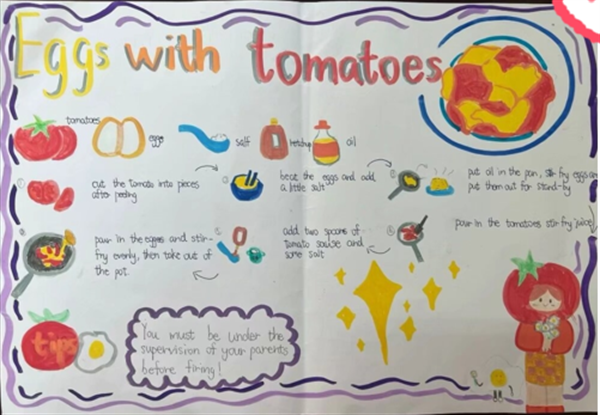 Eggs with tomatoes
tomatoes
eggs
salt
ketchup
oil
① cut the tomato into pieces
after peeling
② beat the eggs and add
a little salt
③ put oil in the pan, stir-fry eggs and
put them out for stand-by
pour in the tomatoes stir-fry juice
④
add two spoons of
tomato sause and
some salt
⑤
pour in the eggs and stir-
fry evenly, then take out of
the pot.
tips
You must be under the
supervision of your parents
before firing!